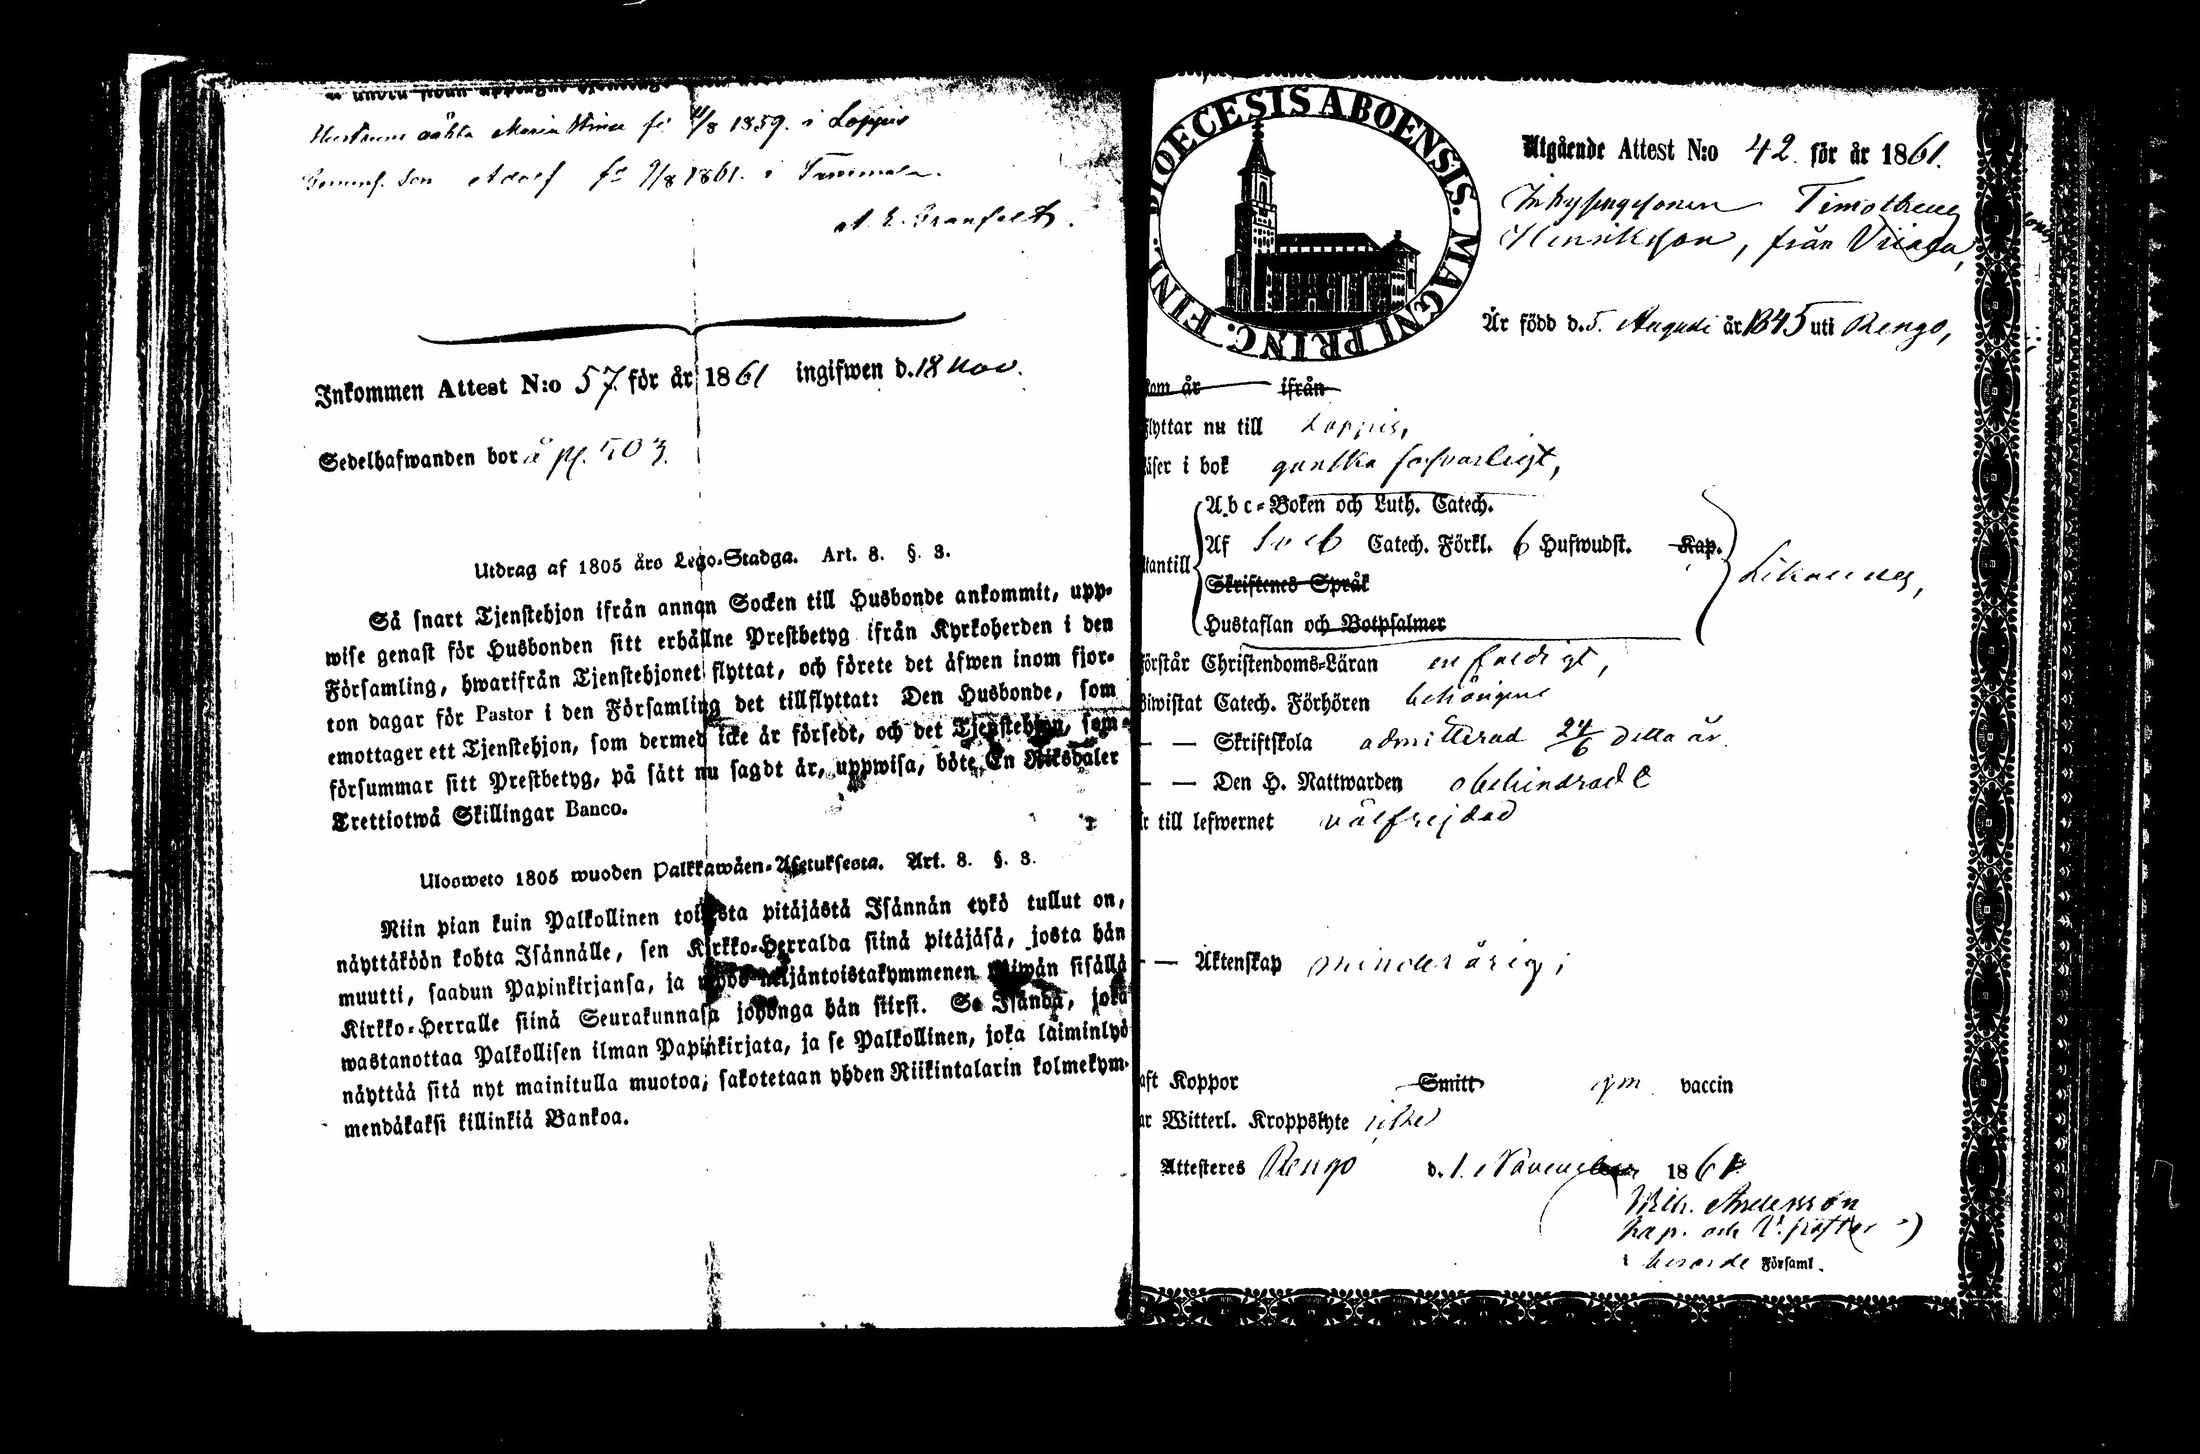 Hustruns oäkta Maria Stina fö 11/8 1859. i Loppis
Gemens. Son Adolf fö 9/8 1861. i
A. E. Granfelt.
Inkommen Attest N:o 57 för år 1861 ingifwen d. 18 Nov.
Sedelhafwanden bor å pg. 503.
Utdrag af 1805 års Lego-Stadga. Art. 8. §. 3.
Så snart Tjenstehjon ifrån annan Socken till Husbonde ankommit, upp-
wise genast för Husbonden sitt erhållne Prestbetyg ifrån Kyrkoherden i den
Församling, hwarifrån Tjenstehjonet flyttat, och förete det äfwen inom fjor-
ton dagar för Pastor i den Församling det tillflyttat: Den Husbonde, som
emottager ett Tjenstehjon, som dermed icke är försedt, och det Tjenstehjon, som
försummar sitt Prestbetyg, på sätt nu sagdt är, uppwisa, böte En Riksdaler
Trettiotwå Skillingar Banco.
Ulosweto 1805 wuoden Palkkawäen-Asetuksesta. Art. 8. §. 3.
Niin pian kuin Palkollinen toisesta pitäjästä Isännän tykö tullut on,
näyttäköön kohta Isännälle, sen Kirkko-Herralda siinä pitäjäsä, josta hän
muutti, saadun Papinkirjansa, ja myös neljäntoistakymmenen päiwän sisällä
Kirkko-Herralle siinä Seurakunnasa johonga hän siirsi. Se Isändä, joka
wastanottaa Palkollisen ilman Papinkirjata, ja se Palkollinen, joka laiminlyö
näyttää sitä nyt mainitulla muotoa, sakotetaan yhden Riikintalarin kolmekym-
mendäkaksi killinkiä Bankoa.
DIOECESIS ABOENSIS. MAGNI PRINC. FINL.
Utgående Attest N:o 42. för år 1861.
Inhysingssonen Timotheus
Henriksson, från
Är född d. 5. Augusti år 1845 uti Rengo,
kom år ifrån
flyttar nu till Loppis,
läser i bok ganska försvarligt,
Abc-Boken och Luth. Catech.
Af Sveb Catech. Förkl. 6 Hufwudst. Kap.
utantill Likaledes,
Skriftenes Språk
Hustaflan och Botpsalmer
förstår Christendoms-Läran enfaldigt,
Biwistat Catech. Förhören behörigen
— — Skriftskola admitterad 24/6 detta år.
— — Den H. Nattwarden obehindrad
är till lefwernet välfrejdad
— — Äktenskap minderårig;
haft Koppor Smitt gm vaccin
har Witterl. Kroppslyte icke
Attesteres Rengo d. 1. November 1861
Wilh. Andersson
Kap. och V. pastor
i berörde Församl.